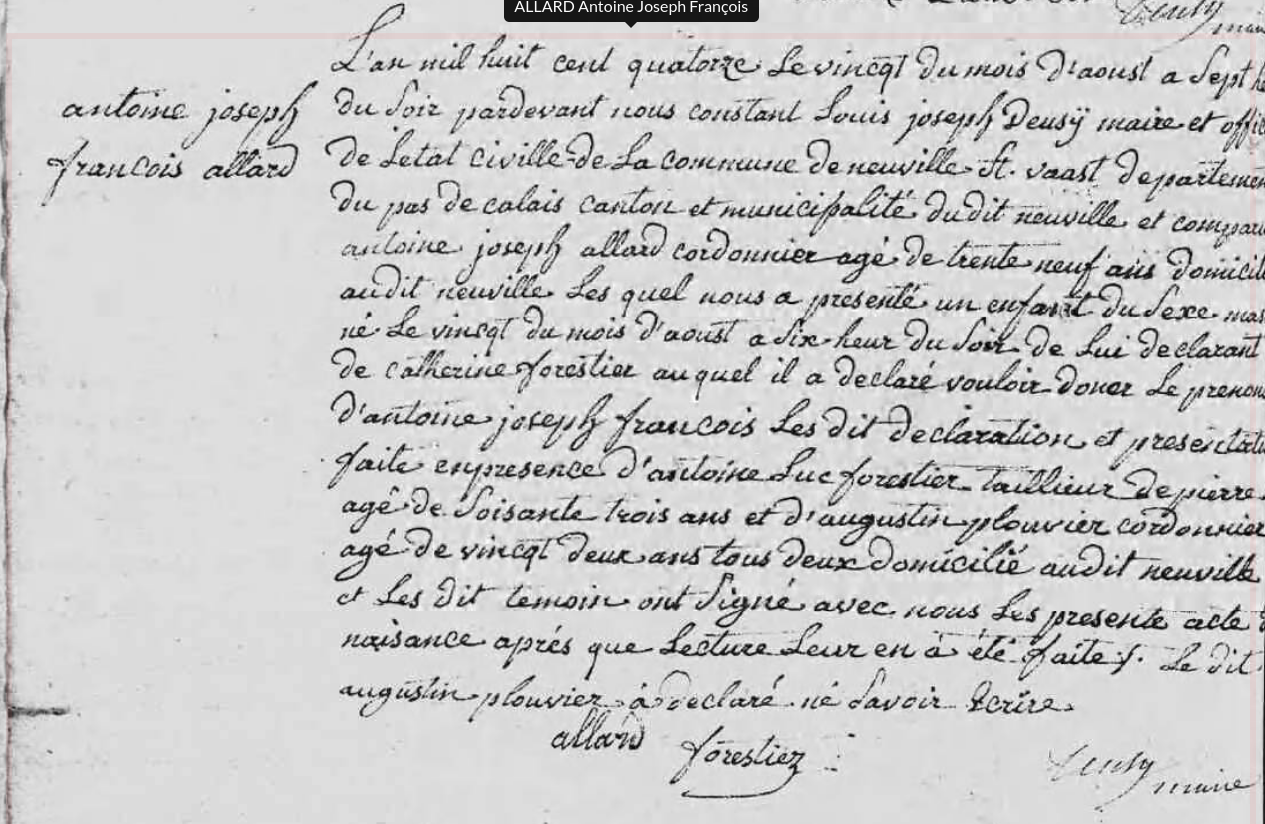 ALLARD Antoine Joseph François
maire
antoine joseph
francois allard
L'an mil huit cent quatorze Le vincqt du mois d'aoust a Sept h
du Soir pardevant nous constant Louis joseph Deusÿ maire et offic
de Letat civille de La commune de neuville St. vaast departemen
du pas de calais canton et municipalité dudit neuville et comparu
antoine joseph allard cordonnier agé de trente neuf ans domicil
audit neuville Les quel nous a presenté un enfant du Sexe mas
né Le vincqt du mois d'aoust a Six heur du Soir de Lui declarant
de catherine forestier auquel il a declaré vouloir doner Le prenom
d'antoine joseph francois Les dit declaration et presentati
faite enpresence d'antoine Luc forestier taillieur de pierre
agé de Soisante trois ans et d'augustin plouvier cordonnier
agé de vincqt deux ans tous deux domicilié audit neuville
et Les dit temoin ont Signé avec nous Les presente acte d
naisance aprés que Lecture Leur en à été faite Le dit
augustin plouvier à declaré né Savoir Ecrire
allard
forestier
Deusy
maire